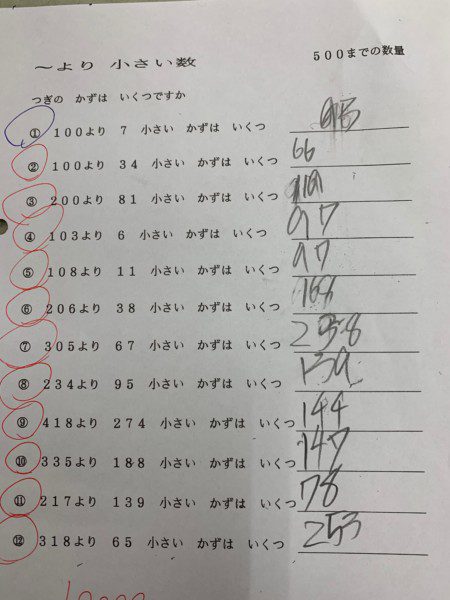 ～より 小さい数
500までの数量
つぎの かずは いくつですか
① 100より 7 小さい かずは いくつ
② 100より 34 小さい かずは いくつ 66
③ 200より 81 小さい かずは いくつ 119
④ 103より 6 小さい かずは いくつ 97
⑤ 108より 11 小さい かずは いくつ 97
⑥ 206より 38 小さい かずは いくつ 168
⑦ 305より 67 小さい かずは いくつ 238
⑧ 234より 95 小さい かずは いくつ 139
⑨ 418より 274 小さい かずは いくつ 144
⑩ 335より 188 小さい かずは いくつ 147
⑪ 217より 139 小さい かずは いくつ 78
⑫ 318より 65 小さい かずは いくつ 253